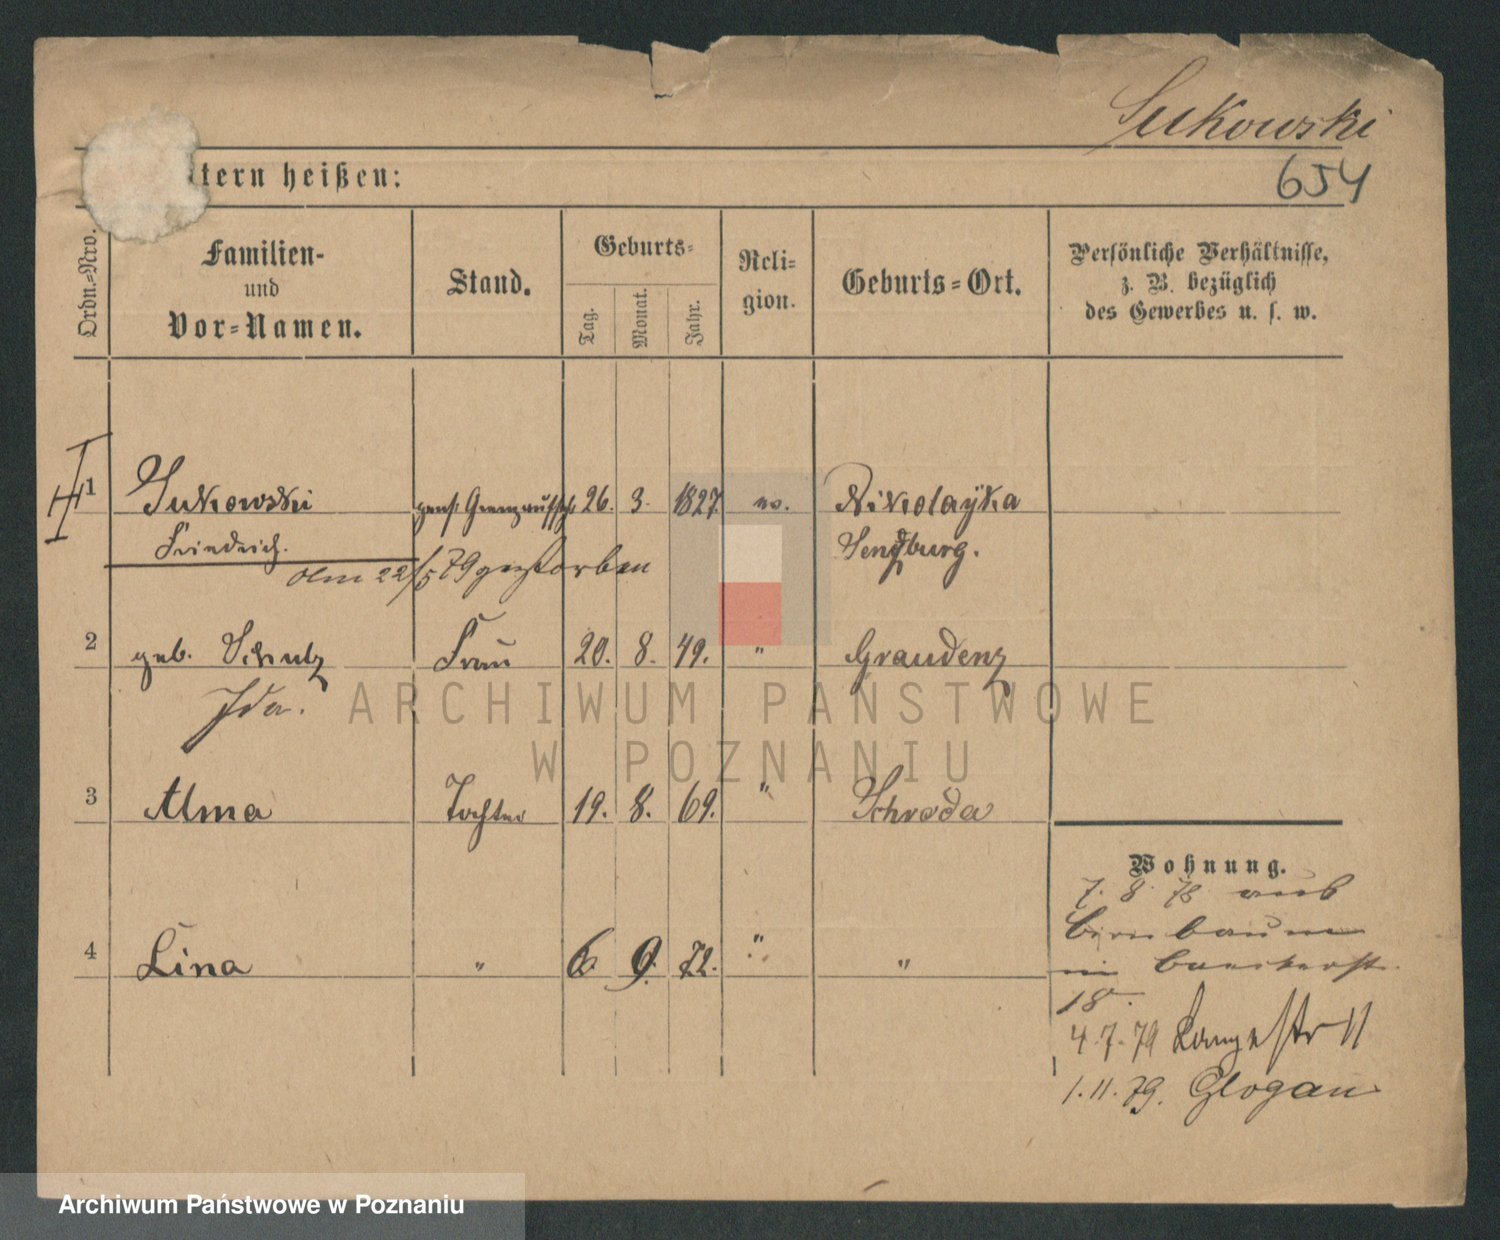 Sukowski
654
ltern heißen:
Ordn.-Nro.
Familien-
und
Vor-Namen.
Stand.
Geburts-
Tag.
Monat.
Jahr.
Reli-
gion.
Geburts-Ort.
Persönliche Verhältnisse,
z. B. bezüglich
des Gewerbes u. s. w.
1 Sukowski 26. 3. 1827 ev. Nikolayka
Friedrich. Sensburg.
Am 22/5 79 gestorben
2 geb. Schulz Frau 20. 8. 49. " Graudenz
Ida.
3 Alma Tochter 19. 8. 69. " Schroda
4 Lina " 6 9. 72. " "
Wohnung.
7. 8. 78 aus
Birnbaum
18.
4.7.79 Langestr 11
1.11.79. Glogau
ARCHIWUM PAŃSTWOWE
W POZNANIU
Archiwum Państwowe w Poznaniu